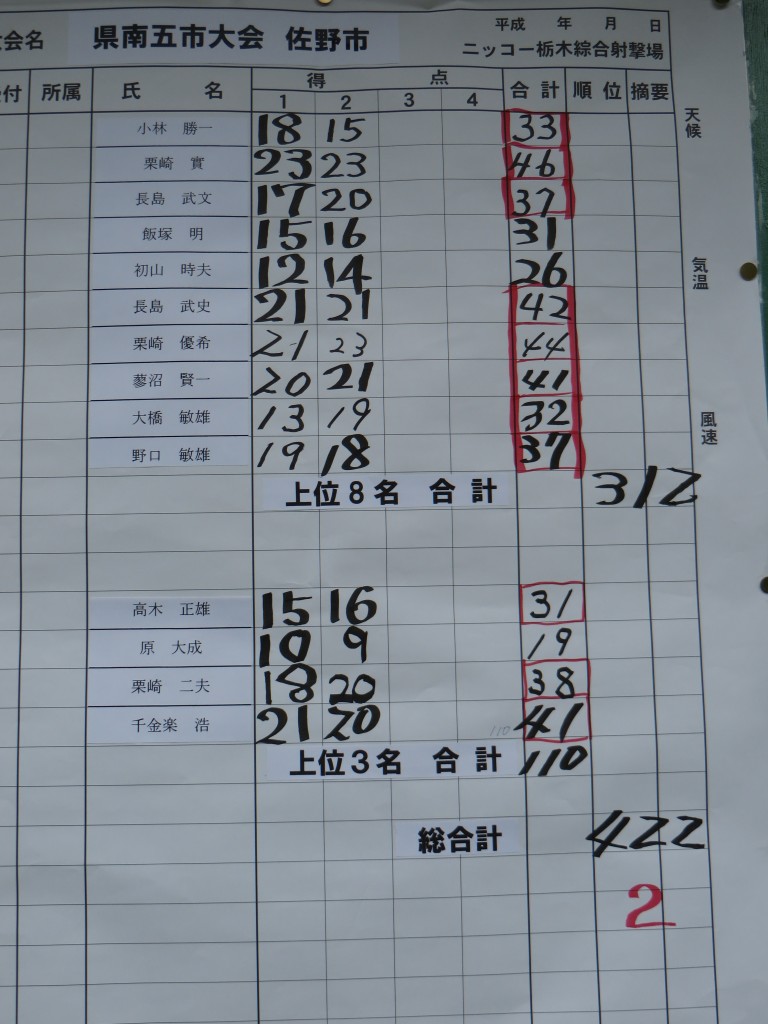 会名 県南五市大会 佐野市
平成 年 月 日
ニッコー栃木綜合射撃場
付 所属 氏 名 得 点 合計 順位 摘要
1 2 3 4
天候
小林 勝一 18 15 33
栗崎 實 23 23 46
長島 武文 17 20 37
飯塚 明 15 16 31
初山 時夫 12 14 26
気温
長島 武史 21 21 42
栗崎 優希 21 23 44
蓼沼 賢一 20 21 41
大橋 敏雄 13 19 32
風速
野口 敏雄 19 18 37
上位8名 合計 312
高木 正雄 15 16 31
原 大成 10 9 19
栗崎 二夫 18 20 38
千金楽 浩 21 20 41
110
上位3名 合計 110
総合計 422
2